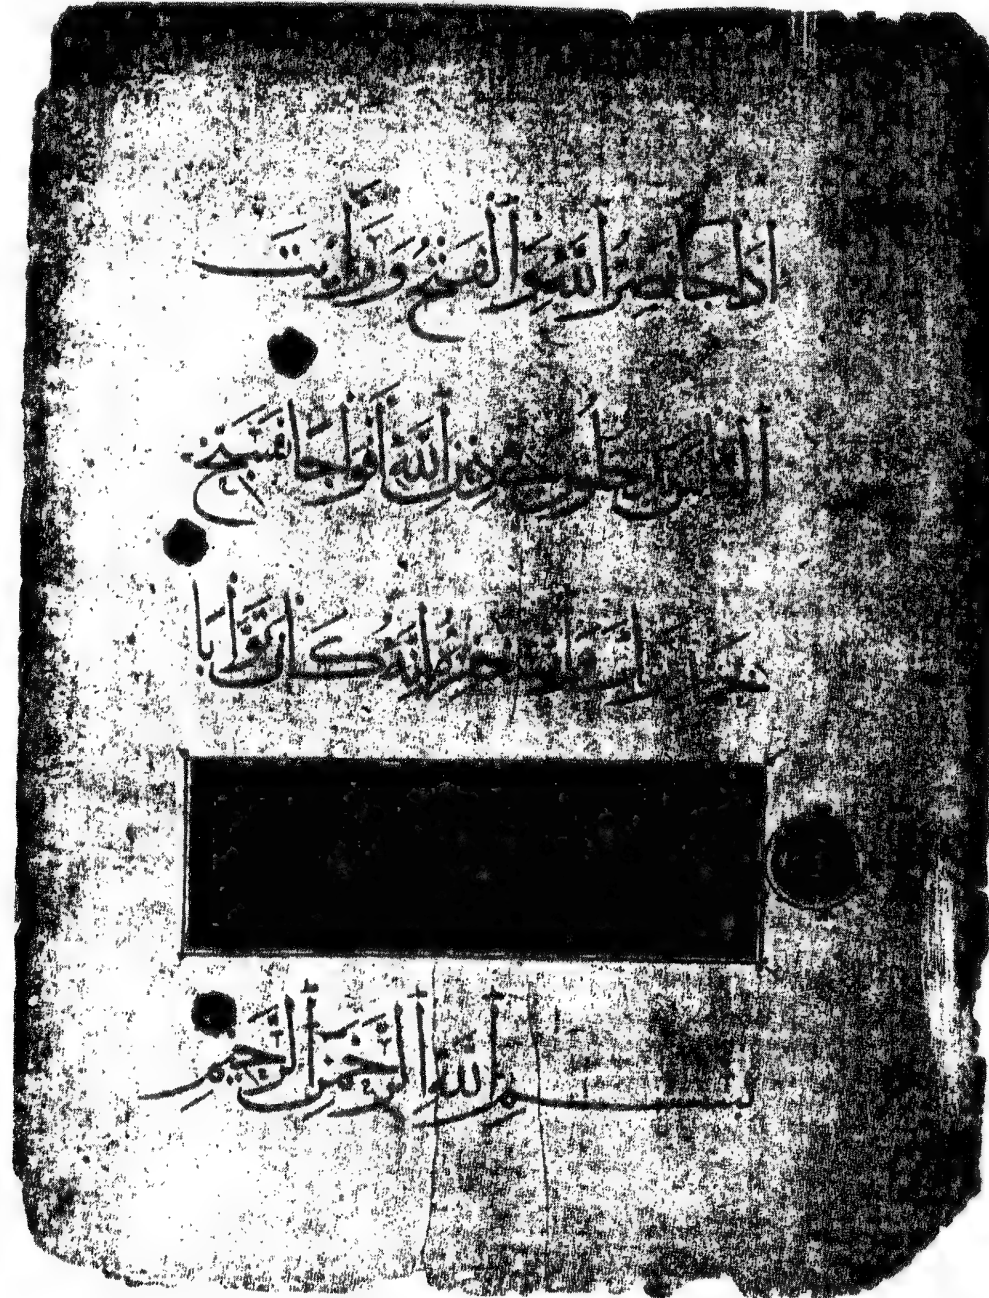 اِذَا جَا نَصْرُ اللّٰهِ وَالْفَتْحُ وَرَاَيْتَ
النَّاسَ يَدْخُلُونَ فِي دِينِ اللّٰهِ اَفْوَاجًا فَسَبِّحْ
بِحَمْدِ رَبِّكَ وَاسْتَغْفِرْهُ اِنَّهُ كَانَ تَوَّابًا
بِسْمِ اللّٰهِ الرَّحْمٰنِ الرَّحِيمِ